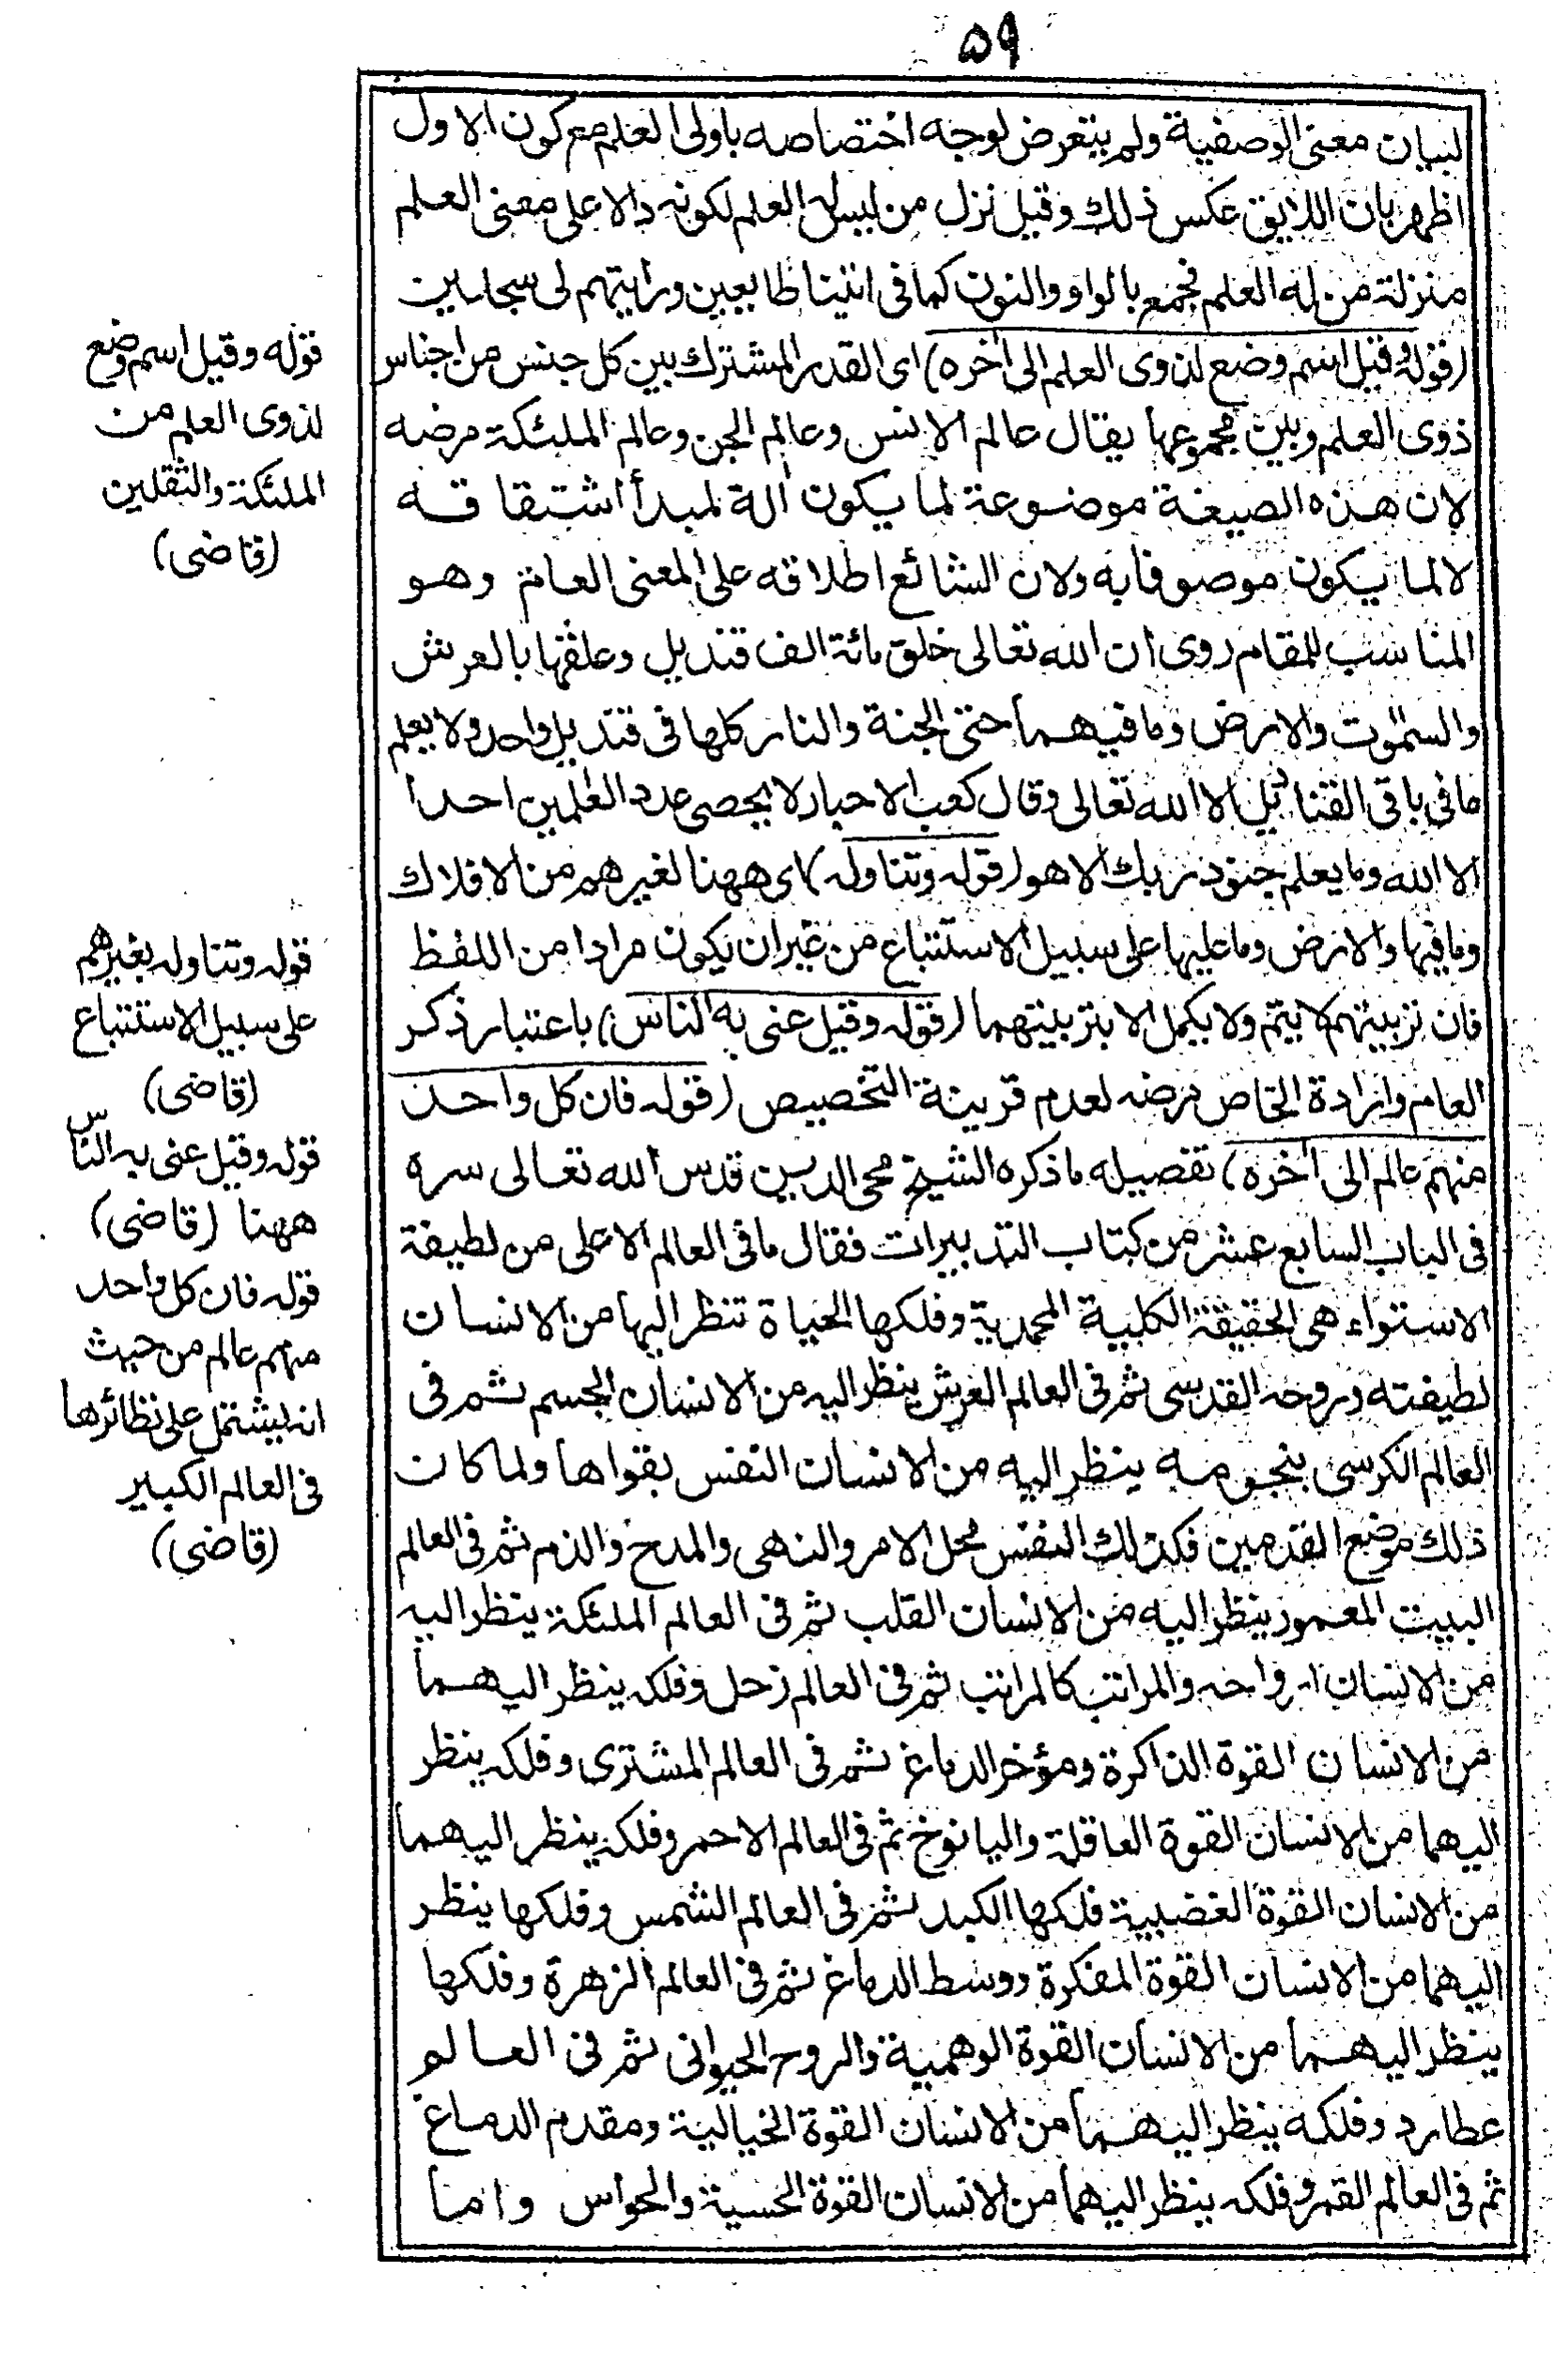 ٥٩
لبيان معنى الوصفية ولم يتعرض لوجه اختصاصه باولى العلم مع كون الاول
اظهر بان اللايق عكس ذلك وقيل نزل من ليس له العلم لكونه دالا على معنى العلم
منزلة من له العلم فجمع بالواو والنون كما فى اتينا طايعين ورايتهم لى سجاسين
(قوله وقيل اسم وضع لذوى العلم الى اخره) اى القدر المشترك بين كل جنس من اجناس
ذوى العلم وبين مجموعها يقال عالم الانس وعالم الجن وعالم الملئكة مرضه
لان هذه الصيغة موضوعة لما يكون الة لمبدأ اشتقاقه
لا لما يكون موصوفا به ولان الشائع اطلاقه على المعنى العام وهو
المناسب للمقام روى ان الله تعالى خلق مائة الف قنديل وعلقها بالعرش
والسموت والارض وما فيهما حتى الجنة والنار كلها فى قنديل واحد ولا يعلم
ما فى باقى القناديل الا الله تعالى وقال كعب الاحبار لا يحصى عدد العلمين احدا
الا الله وما يعلم جنود ربك الا هو (قوله وتناوله) اى ههنا لغيرهم من الافلاك
وما فيها والارض وما عليها على سبيل الاستتباع من غير ان يكون مرادا من اللفظ
فان تربيتهم لا يتم ولا يكمل الا بتربيتهما (قوله وقيل عنى به الناس) باعتبار ذكر
العام وارادة الخاص مرضه لعدم قرينة التخصيص (قوله فان كل واحد
منهم عالم الى اخره) تفصيله ما ذكره الشيخ محى الدين قدس الله تعالى سره
فى الباب السابع عشر من كتاب التدبيرات فقال ما فى العالم الاعلى من لطيفة
الاستواء هى الحقيقة الكلية المحمدية وفلكها الحياة تنظر اليها من الانسان
لطيفته وروحه القدسى ثم فى العالم العرش ينظر اليه من الانسان الجسم ثم فى
العالم الكرسى بنجومه ينظر اليه من الانسان النفس بقواها ولما كان
ذلك موضع القدمين فكذلك النفس محل الامر والنهى والمدح والذم ثم فى العالم
البيت المعمور ينظر اليه من الانسان القلب ثم فى العالم الملئكة ينظر اليه
من الانسان ارواحه والمراتب كالمراتب ثم فى العالم زحل وفلكه ينظر اليهما
من الانسان القوة الذاكرة ومؤخر الدماغ ثم فى العالم المشترى وفلكه ينظر
اليهما من الانسان القوة العاقلة واليانوخ ثم فى العالم الاحمر وفلكه ينظر اليهما
من الانسان القوة الغضبية فلكها الكبد ثم فى العالم الشمس وفلكها ينظر
اليهما من الانسان القوة المفكرة ووسط الدماغ ثم فى العالم الزهرة وفلكها
ينظر اليهما من الانسان القوة الوهمية والروح الحيوانى ثم فى العالم
عطارد وفلكه ينظر اليهما من الانسان القوة الخيالية ومقدم الدماغ
ثم فى العالم القمر وفلكه ينظر اليهما من الانسان القوة الحسية والحواس واما
قوله وقيل اسم وضع
لذوى العلم من
الملئكة والثقلين
(قاضى)
قوله وتناوله بغيرهم
على سبيل الاستتباع
(قاضى)
قوله وقيل عنى به الناس
ههنا (قاضى)
قوله فان كل واحد
منهم عالم من حيث
انه يشتمل على نظائرها
فى العالم الكبير
(قاضى)